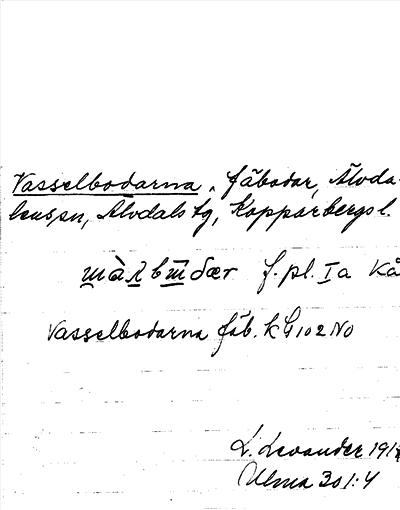 Vasselbodarna, fäbodar, Älvda-
lens sn, Älvdals tg, Kopparbergs l.
f. pl. Ia Kå
Vasselbodarna fäb. k G 102 NO
L. Levander 191
Ulma 301:4